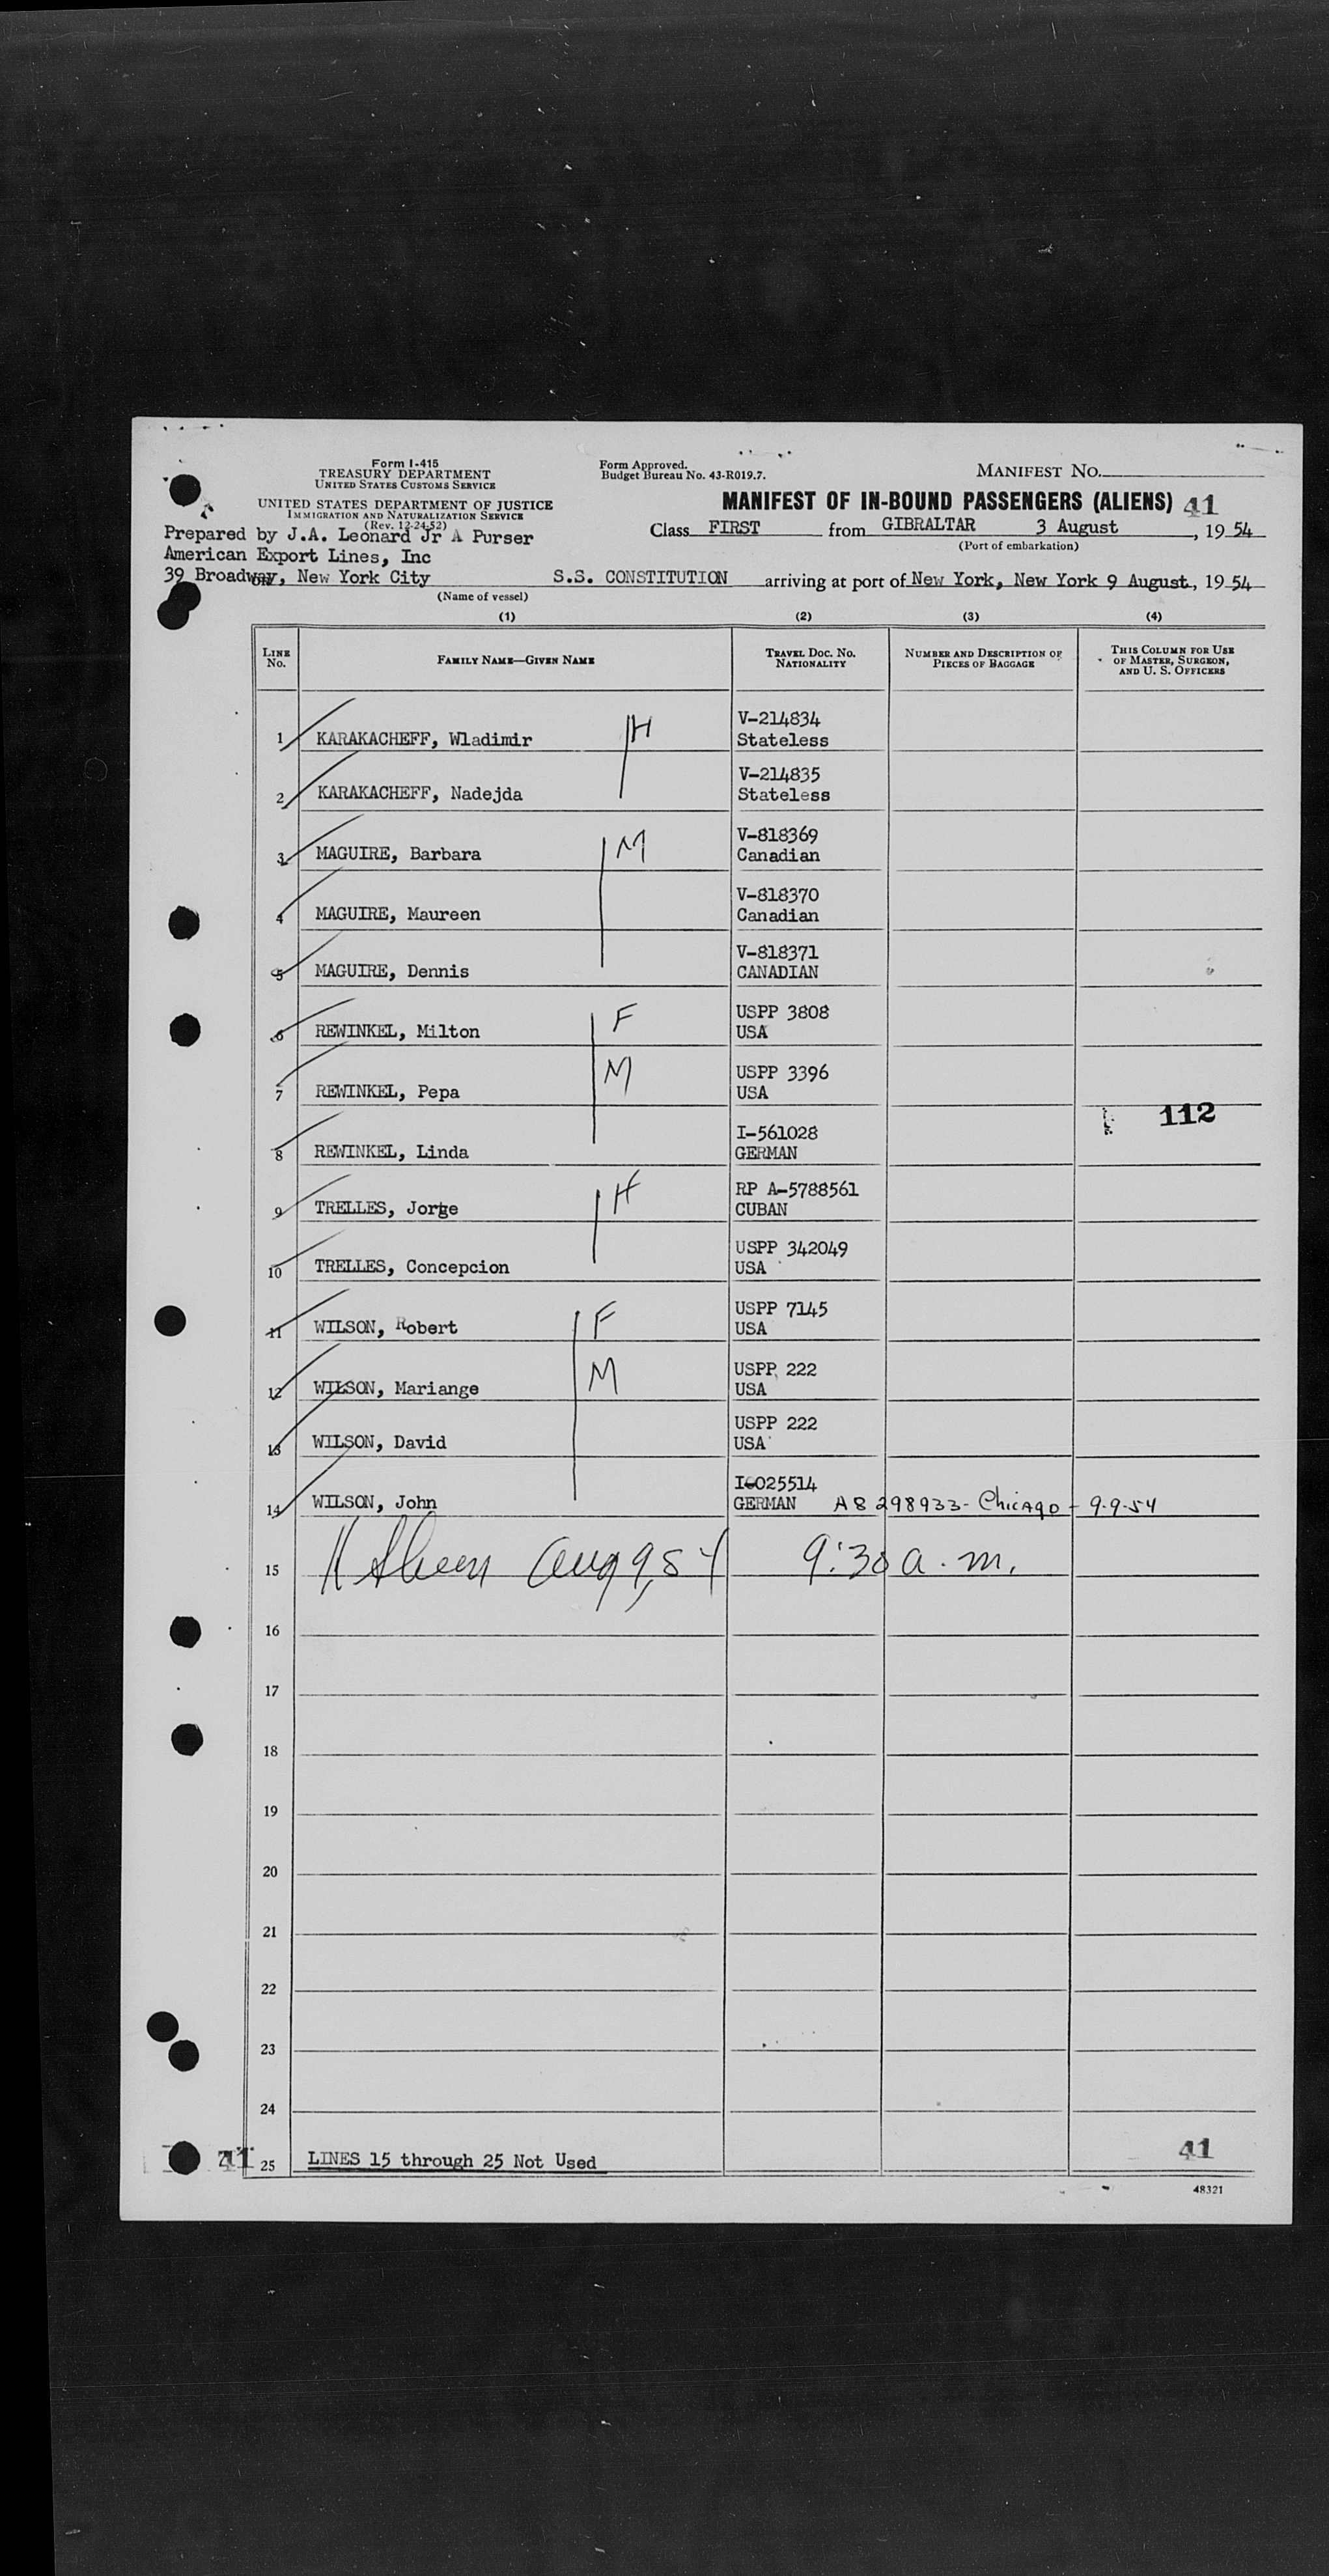 Form I-415
TREASURY DEPARTMENT
UNITED STATES CUSTOMS SERVICE
UNITED STATES DEPARTMENT OF JUSTICE
IMMIGRATION AND NATURALIZATION SERVICE
(Rev. 12-24-52)
Form Approved.
Budget Bureau No. 43-R019.7.
MANIFEST NO.
MANIFEST OF IN-BOUND PASSENGERS (ALIENS) 41
Prepared by J.A. Leonard Jr A Purser
American Export Lines, Inc
39 Broadway, New York City
Class FIRST from GIBRALTAR 3 August, 1954
(Port of embarkation)
S.S. CONSTITUTION arriving at port of New York, New York 9 August, 1954
(Name of vessel)
(1) (2) (3) (4)
LINE NO.
FAMILY NAME—GIVEN NAME
TRAVEL DOC. NO.
NATIONALITY
NUMBER AND DESCRIPTION OF
PIECES OF BAGGAGE
THIS COLUMN FOR USE
OF MASTER, SURGEON,
AND U. S. OFFICERS
1 KARAKACHEFF, Wladimir H V-214834
Stateless
2 KARAKACHEFF, Nadejda V-214835
Stateless
3 MAGUIRE, Barbara M V-818369
Canadian
4 MAGUIRE, Maureen V-818370
Canadian
5 MAGUIRE, Dennis V-818371
CANADIAN
6 REWINKEL, Milton F USPP 3808
USA
7 REWINKEL, Pepa M USPP 3396
USA
112
8 REWINKEL, Linda I-561028
GERMAN
9 TRELLES, Jorge H RP A-5788561
CUBAN
10 TRELLES, Concepcion USPP 342049
USA
11 WILSON, Robert F USPP 7145
USA
12 WILSON, Mariange M USPP 222
USA
13 WILSON, David USPP 222
USA
14 WILSON, John I-025514
GERMAN A8 298933- Chicago - 9-9-54
15 Aug 9, 54 9:30 a.m.
16
17
18
19
20
21
22
23
24
41 25 LINES 15 through 25 Not Used 41
48321